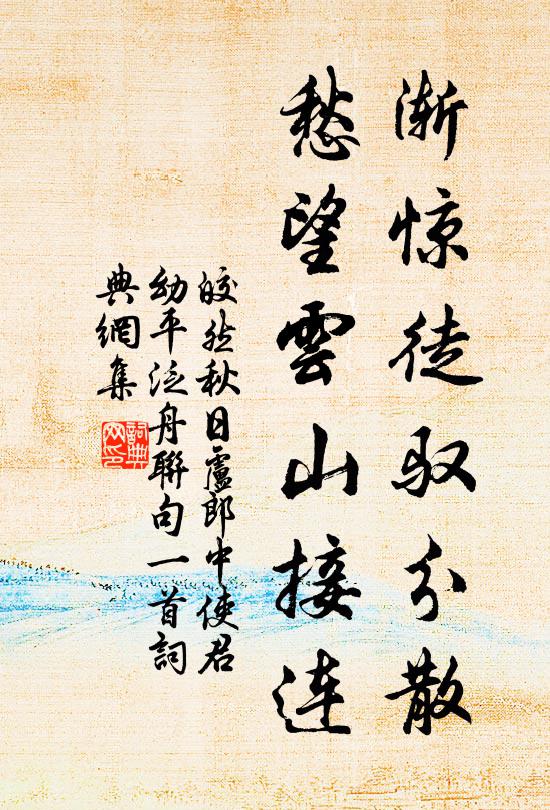 渐惊徒驭分散
愁望雲山接连
皎然秋日盧郎中使君
幼平泛舟聯句一首詞
典網集
詞典